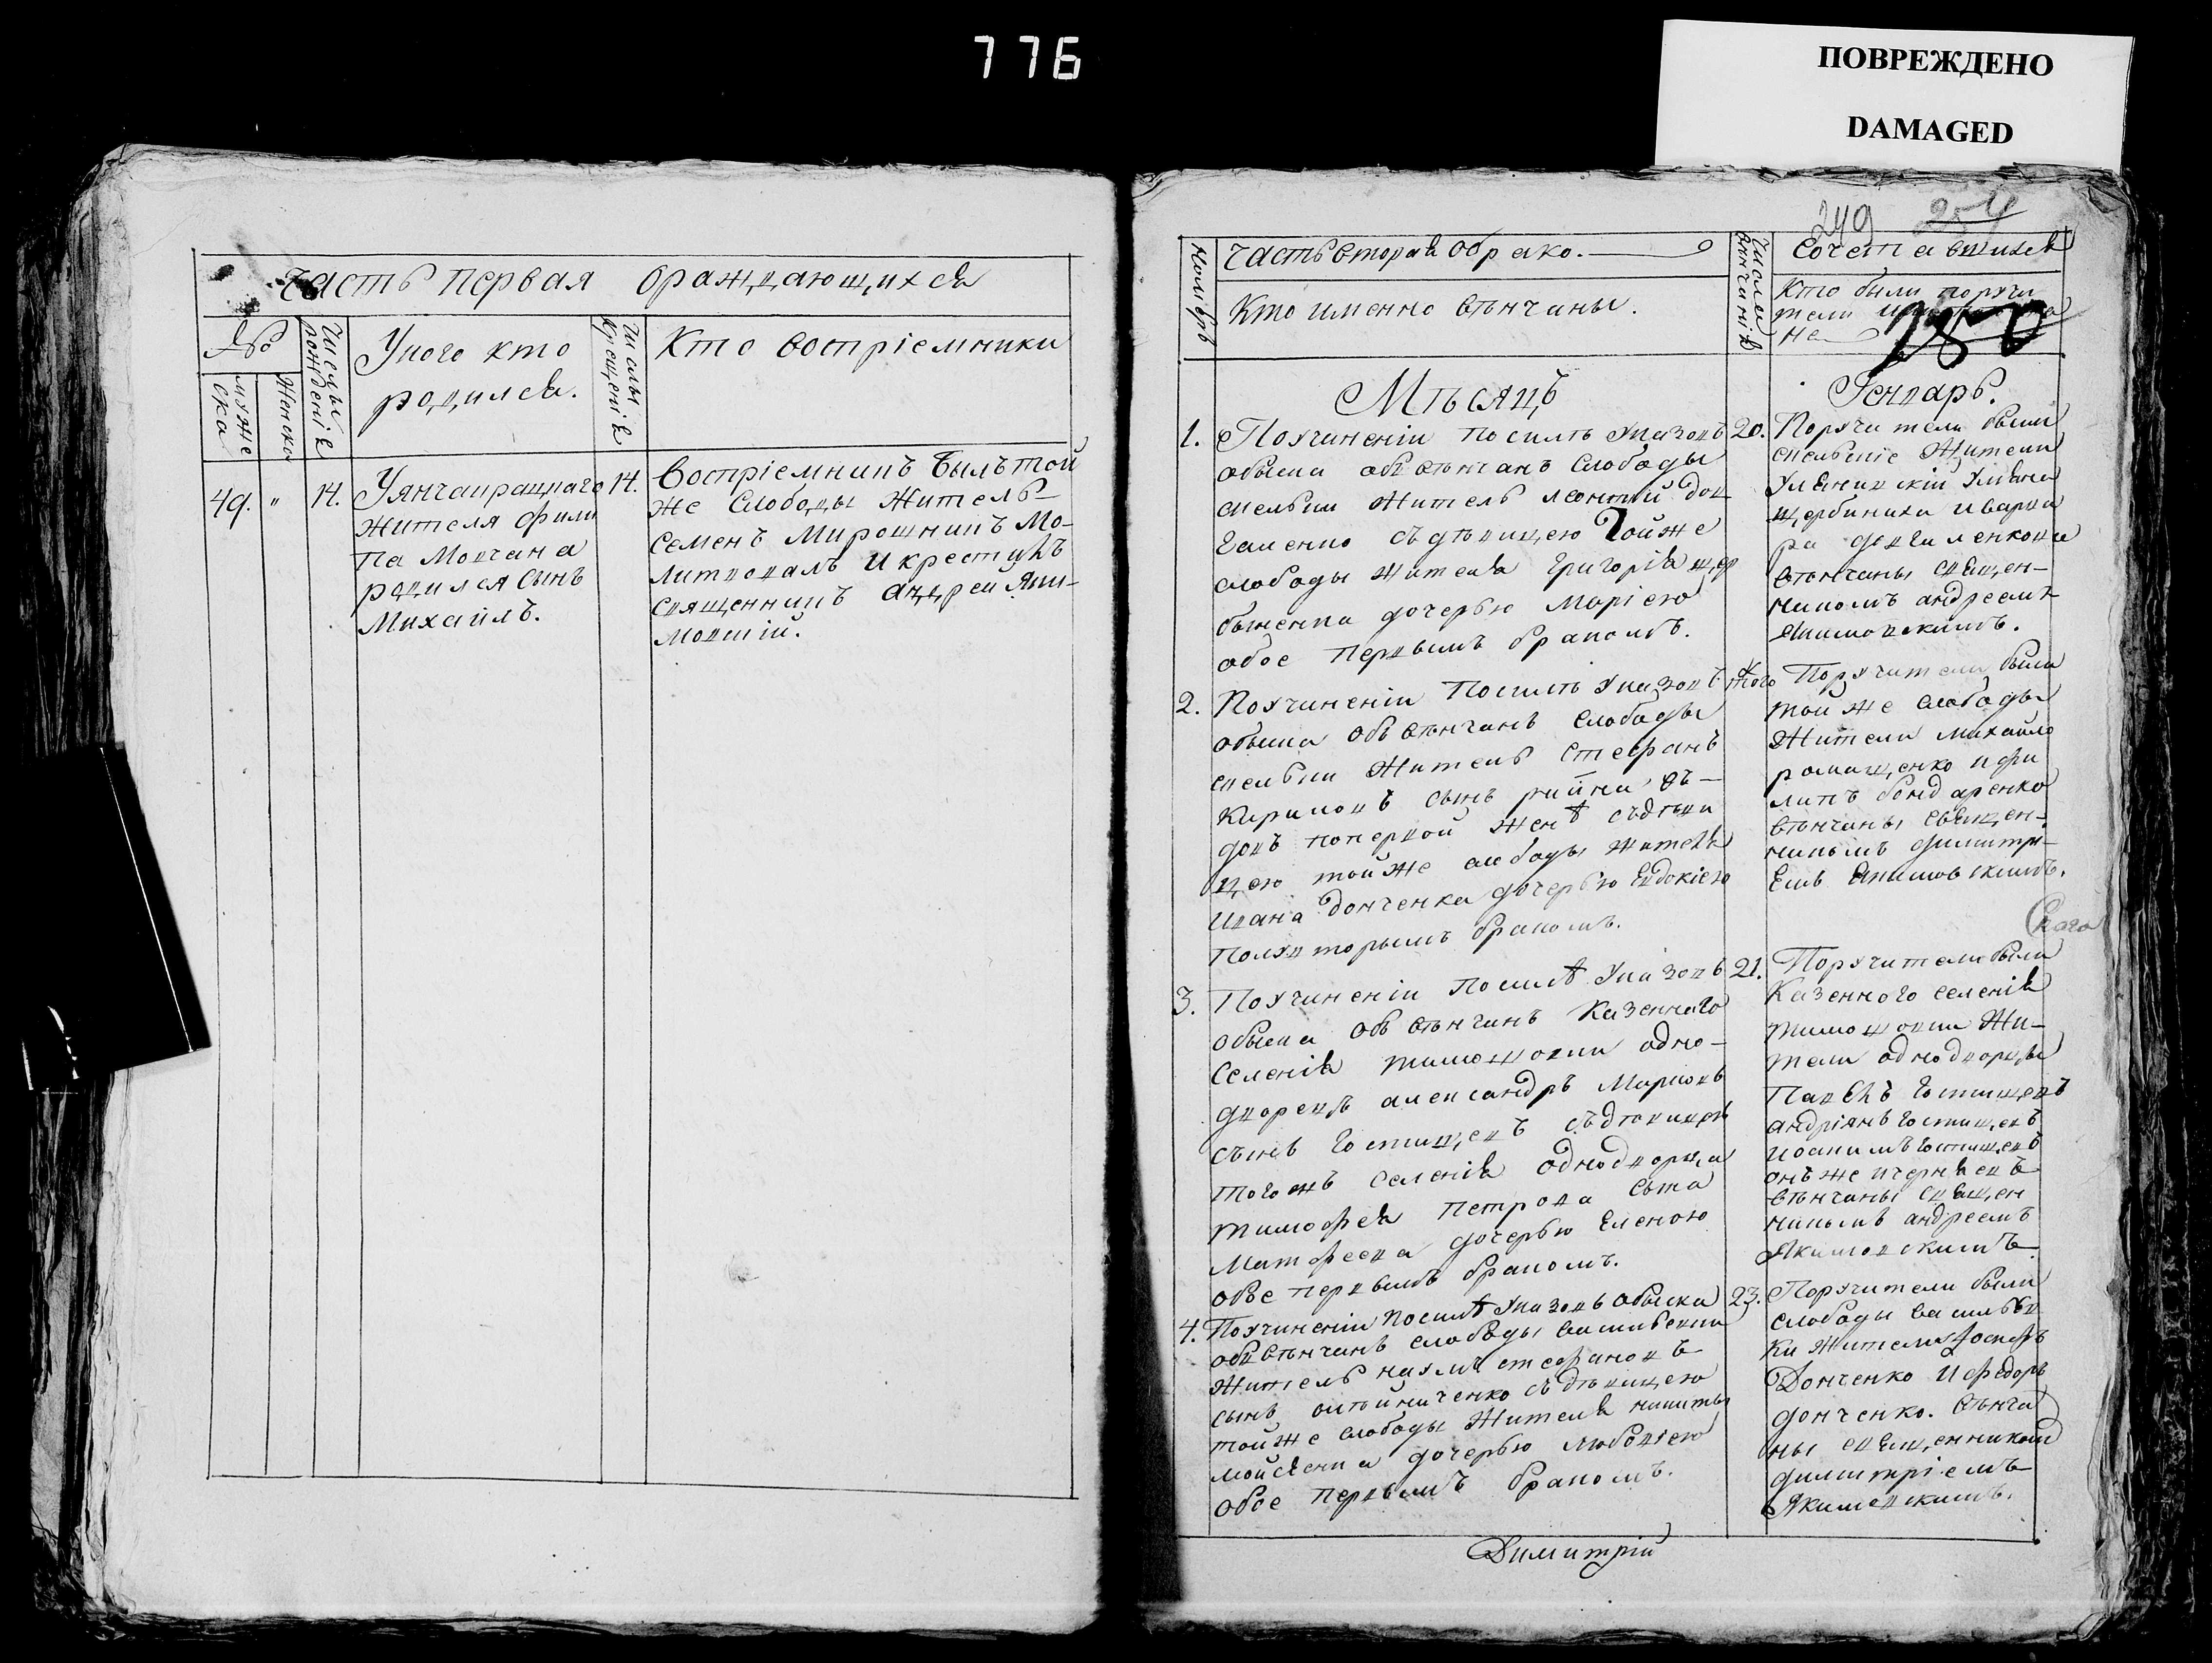 776
ПОВРЕЖДЕНО
DAMAGED
часть первая ораждающихся
№
муже
ска
женска
Числы
рожденія
Укого кто
родился.
Числы
крещенія
Кто воспріемники
49. " 14.
Уянчакрацкаго
жителя фили
па Мовчана
родился сынъ
Михаилъ.
14.
Воспріемникъ былъ той
же Слободы житель
Семенъ Мирошникъ Мо-
литвовалъ и крестилъ
священникъ андрей Яки-
мовскій.
249 254
Часть вторая обрако.
Сочетавшихся
Кто именно венчаны.
Числа
венчанія
Кто были поручи
тели
180
Мѣсяцъ
Генварь.
1. Поучиненіи посилѣ указовъ
обыска обвѣнчанъ слободы
житель леонтій
съ дѣвицею тойже
слободы жителя Григорія
дочерью Маріею
обое первымъ бракомъ.
20. Поручители были
жители
вѣнчаны священ-
никомъ андреемъ
Якимовскимъ.
2. Поучиненіи посилѣ указовъ
обыска обвѣнчанъ слободы
житель стефанъ
Кириловъ сынъ
попервой женѣ сдѣви
цею тойже слободы жителя
Ивана донченка дочерью Евдокіею
бракомъ.
того Поручители были
той же слободы
жители михайло
ромащенко ифи
липъ бондаренко
вѣнчаны священ-
никомъ димитрі-
емъ Якимовскимъ.
3. Поучиненіи посилѣ указовъ
обыска обвѣнчанъ казеннаго
селенія тимошовки одно-
дворецъ александръ Марковъ
сынъ гостищевъ сдѣвицею
тогожъ селенія однодворца
тимофея петрова сына
матфеева дочерью Еленою
обе первымъ бракомъ.
21. Поручители были
Казенного селенія
тимошовки жи-
тели однодворцы
Павелъ гостищевъ
андріянъ гостищевъ
иоакимъ гостищевъ
онъже
вѣнчаны священ
никомъ андреемъ
Якимовскимъ
4. Поучиненіи посилѣ указовъ обыска
обвѣнчанъ слободы васильевки
житель наумъ стефановъ
сынъ сдѣвицею
тойже слободы жителя никиты
дочерью
обое первымъ бракомъ.
23. Поручители были
слободы васильев
ки жители
Донченко и федоръ
донченко. вѣнча
ны священникомъ
димитріемъ
Якимовскимъ.
Димитрій